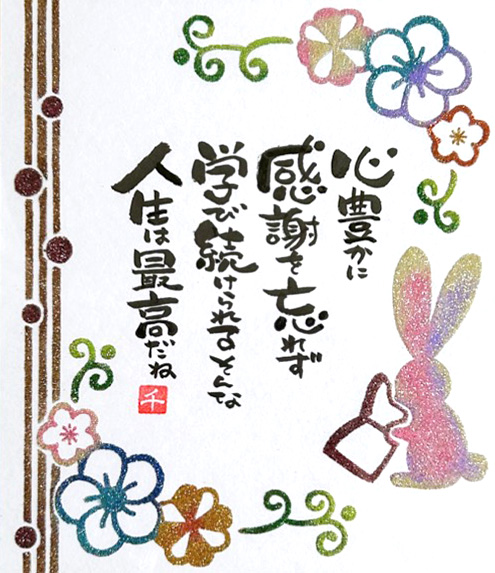 心豊かに
感謝を忘れず
学び続けられるそんな
人生は最高だね
千